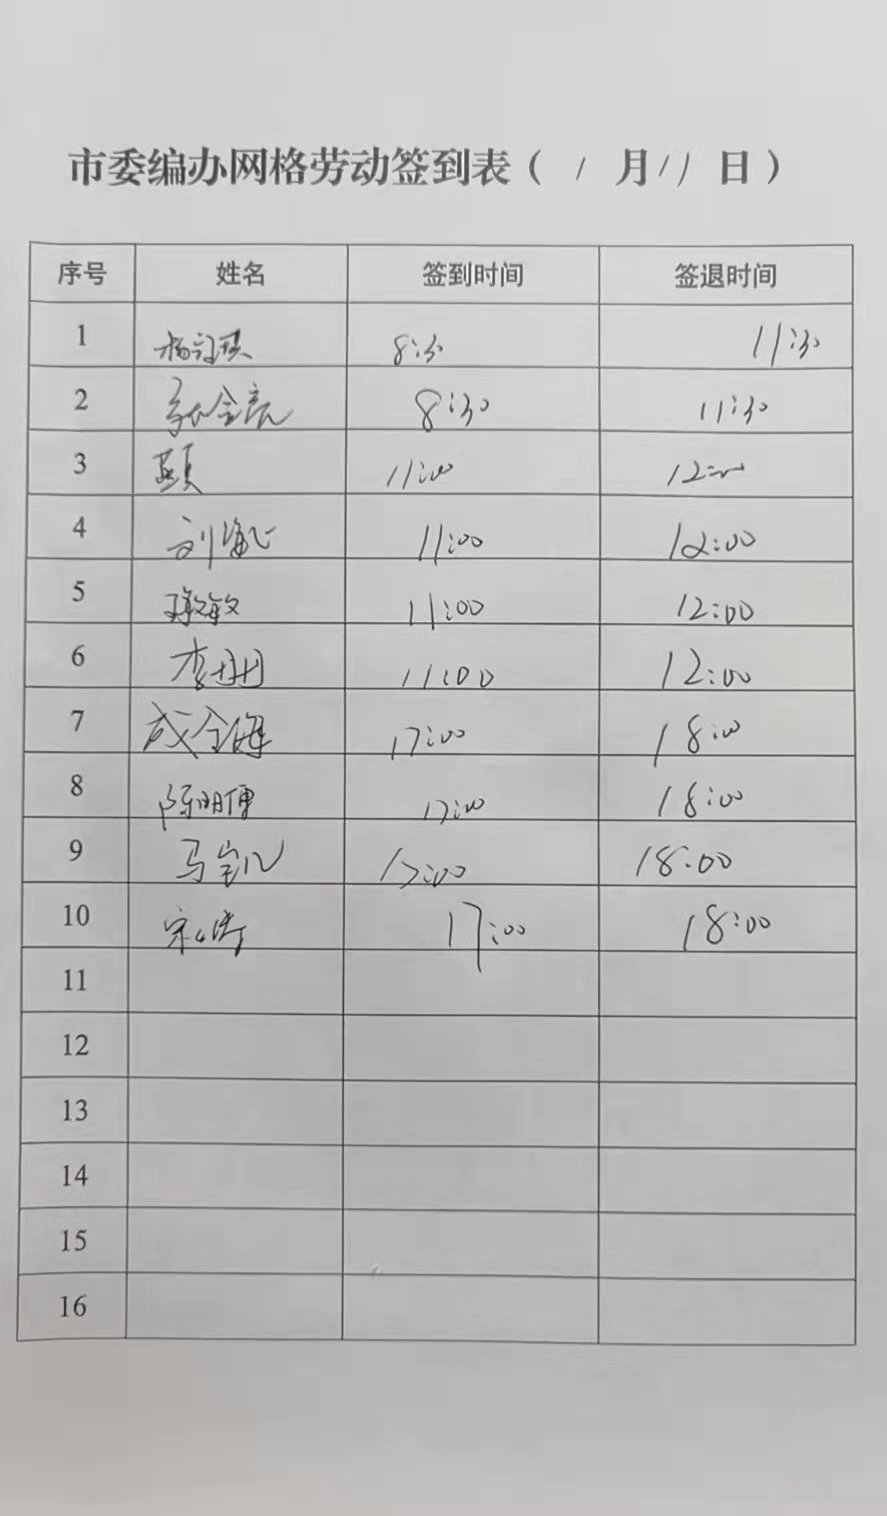 市委编办网格劳动签到表（ 1 月 11 日）
序号 姓名 签到时间 签退时间
1 杨冠琪 8:30 11:30
2 8:30 11:30
3 11:00 12:00
4 刘海心 11:00 12:00
5 敏 11:00 12:00
6 李丹丹 11:00 12:00
7 成全海 17:00 18:00
8 陈明伟 17:00 18:00
9 马宝 17:00 18:00
10 宋 17:00 18:00
11
12
13
14
15
16